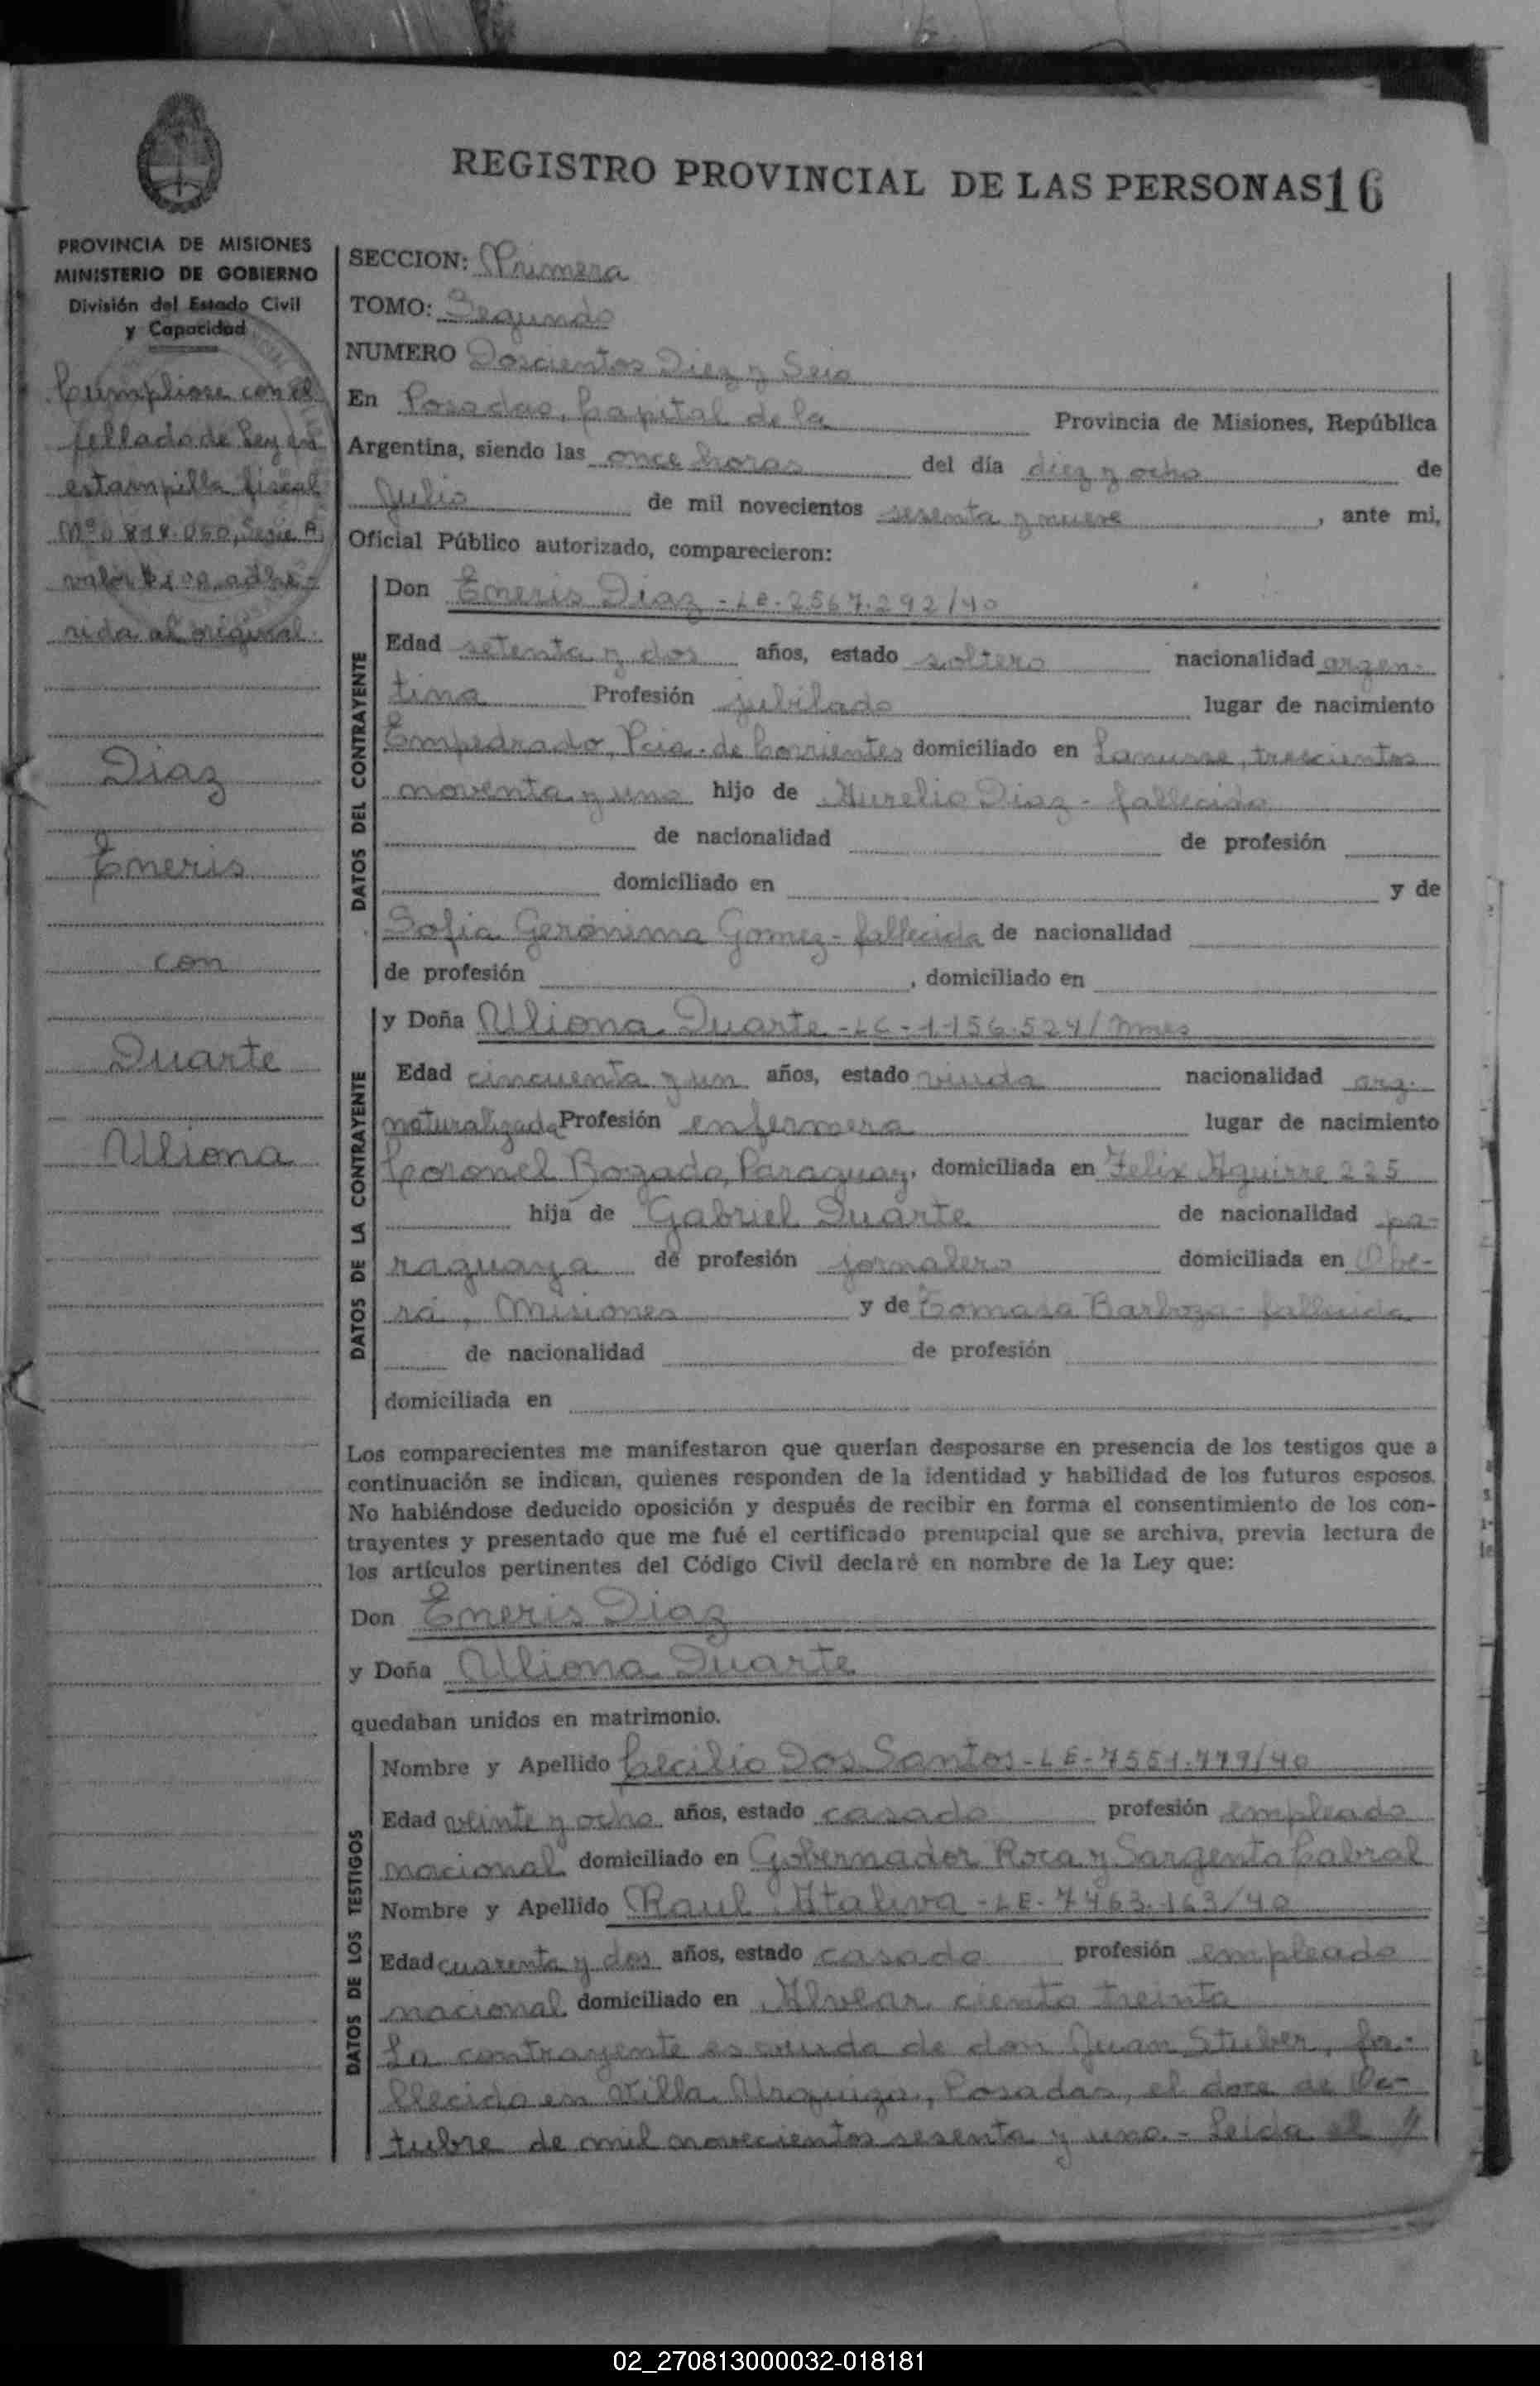 REGISTRO PROVINCIAL DE LAS PERSONAS 16
PROVINCIA DE MISIONES
MINISTERIO DE GOBIERNO
División del Estado Civil
y Capacidad
Cumpliose con el
sellado de Ley en
estampilla fiscal
valor adhe-
rida al original.
Diaz
Eneris
con
Duarte
Uliona
SECCION: Primera
TOMO: Segundo
NUMERO Doscientos Diez y Seis
En Posadas, Capital de la Provincia de Misiones, República
Argentina, siendo las once horas del día diez y ocho de
Julio de mil novecientos sesenta y nueve, ante mi,
Oficial Público autorizado, comparecieron:
DATOS DEL CONTRAYENTE
Don Eneris Diaz - LE. 2567.292/40
Edad setenta y dos años, estado soltero nacionalidad argen-
tina Profesión jubilado lugar de nacimiento
Empedrado, Pcia. de Corrientes domiciliado en Lanusse, trescientos
noventa y uno hijo de Aurelio Diaz - fallecido
de nacionalidad de profesión
domiciliado en y de
Sofia Gerónima Gomez - fallecida de nacionalidad
de profesión , domiciliado en
DATOS DE LA CONTRAYENTE
y Doña Uliona Duarte - LC - 1.156.524/Mnes
Edad cincuenta y un años, estado viuda nacionalidad arg.
naturalizada Profesión enfermera lugar de nacimiento
Coronel Bogado, Paraguay, domiciliada en Felix Aguirre 225
hija de Gabriel Duarte de nacionalidad pa-
raguaya de profesión jornalero domiciliada en Obe-
rá, Misiones y de Tomasa Barboza - fallecida
de nacionalidad de profesión
domiciliada en
Los comparecientes me manifestaron que querían desposarse en presencia de los testigos que a
continuación se indican, quienes responden de la identidad y habilidad de los futuros esposos.
No habiéndose deducido oposición y después de recibir en forma el consentimiento de los con-
trayentes y presentado que me fué el certificado prenupcial que se archiva, previa lectura de
los artículos pertinentes del Código Civil declaré en nombre de la Ley que:
Don Eneris Diaz
y Doña Uliona Duarte
quedaban unidos en matrimonio.
DATOS DE LOS TESTIGOS
Nombre y Apellido Cecilio Dos Santos - LE - 7551.779/40
Edad veinte y ocho años, estado casado profesión empleado
nacional domiciliado en Gobernador Roca y Sargento Cabral
Nombre y Apellido Raul Ataliva - LE - 7463.163/40
Edad cuarenta y dos años, estado casado profesión empleado
nacional domiciliado en Alvear ciento treinta
La contrayente es viuda de don Juan Stuber, fa-
llecido en Villa Urquiza, Posadas, el doce de Oc-
tubre de mil novecientos sesenta y uno. - Leida el
02_270813000032-018181